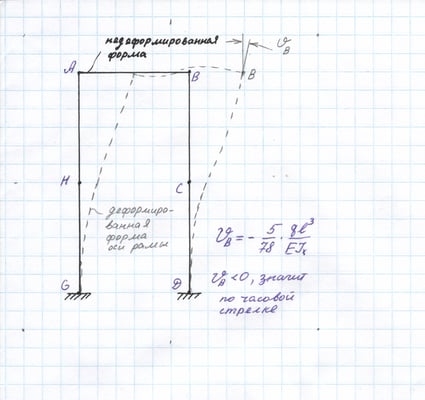 недеформированная
форма
ϑ_B
A
B
B
H
C
деформиро-
ванная
форма
оси рамы
ϑ_B = - 5/78 · ql³/EIₓ
G
D
ϑ_B < 0, значит
по часовой
стрелке